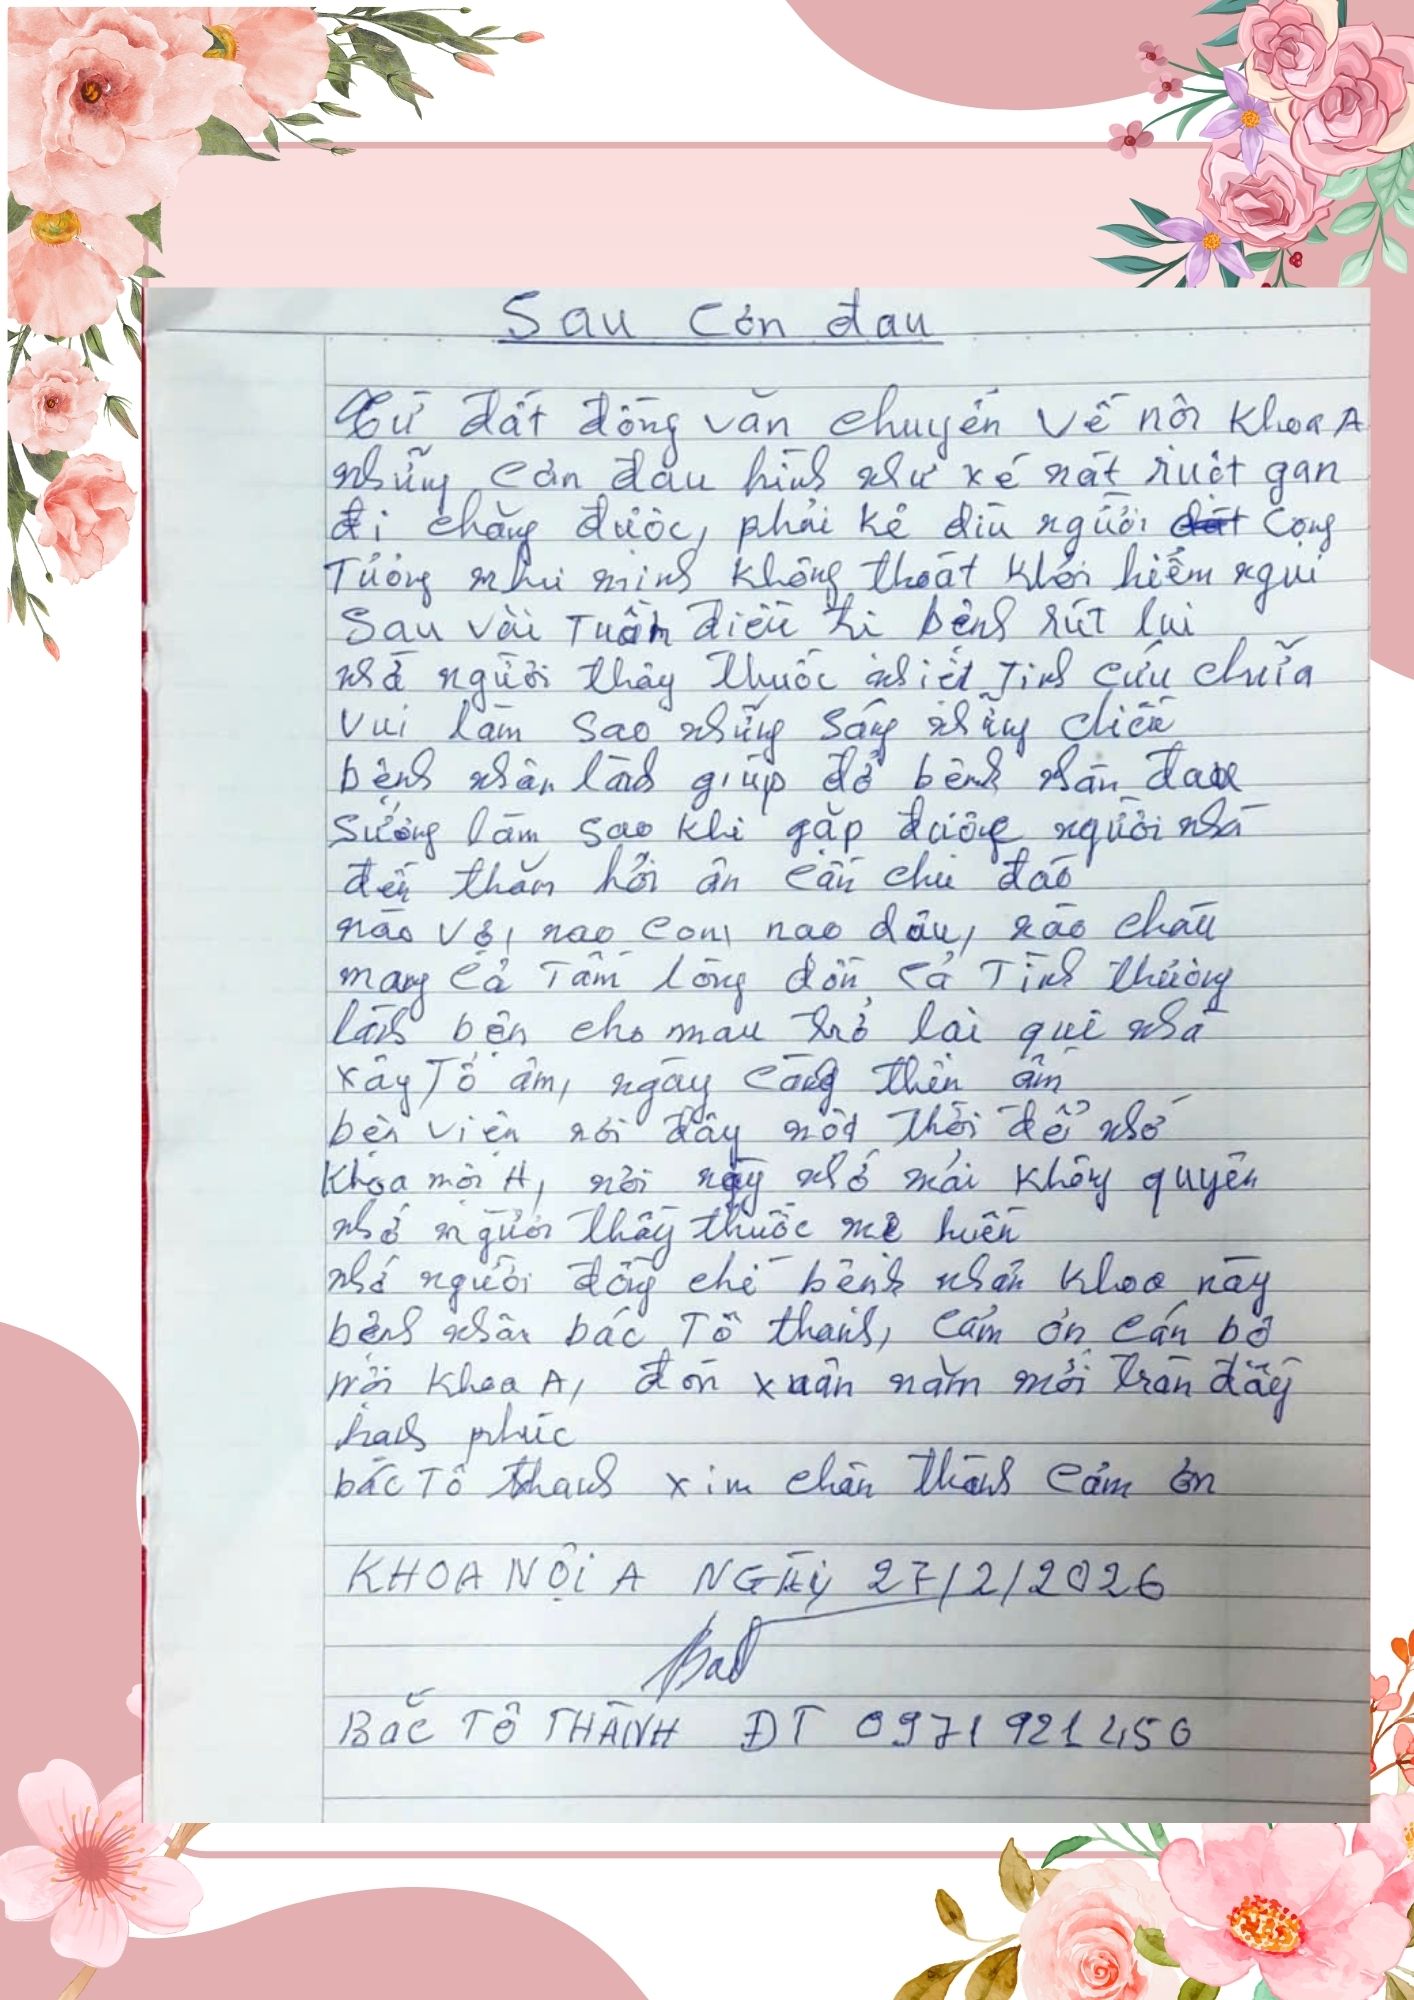 Sau Cơn đau
Từ đất đồng văn chuyển về nội Khoa A
những cơn đau hình như xé nát ruột gan
đi chẳng được, phải kẻ dìu người cọng
Tưởng như mình không thoát khỏi hiểm ngui
Sau vài Tuần điều trị bệnh rút lui
nhờ người thầy thuốc nhiệt Tình cứu chữa
Vui làm sao những sáng những chiều
bệnh nhân lành giúp đỡ bệnh nhân đau
Sướng làm sao khi gặp được người nhà
đến thăm hỏi ân cần chu đáo
nào vợ, nao con, nao dâu, nào cháu
mang cả Tấm lòng dồn cả Tình thương
lành bện cho mau trở lại quê nhà
xây Tổ ấm, ngày càng thên ấm
bện viện nơi đây một thời để nhớ
Khoa nội A, nơi này nhớ mãi không quyên
nhớ người thầy thuốc mẹ huền
nhớ người đồng chí bệnh nhân khoa này
bệnh nhân bác Tô thành, cảm ơn cán bộ
nội khoa A, đón xuân năm mới tràn đầy
hạnh phúc
bác Tô thanh xim chân thành cảm ơn
KHOA NỘI A NGÀY 27/2/2026
BÁC TÔ THÀNH ĐT 0971921450